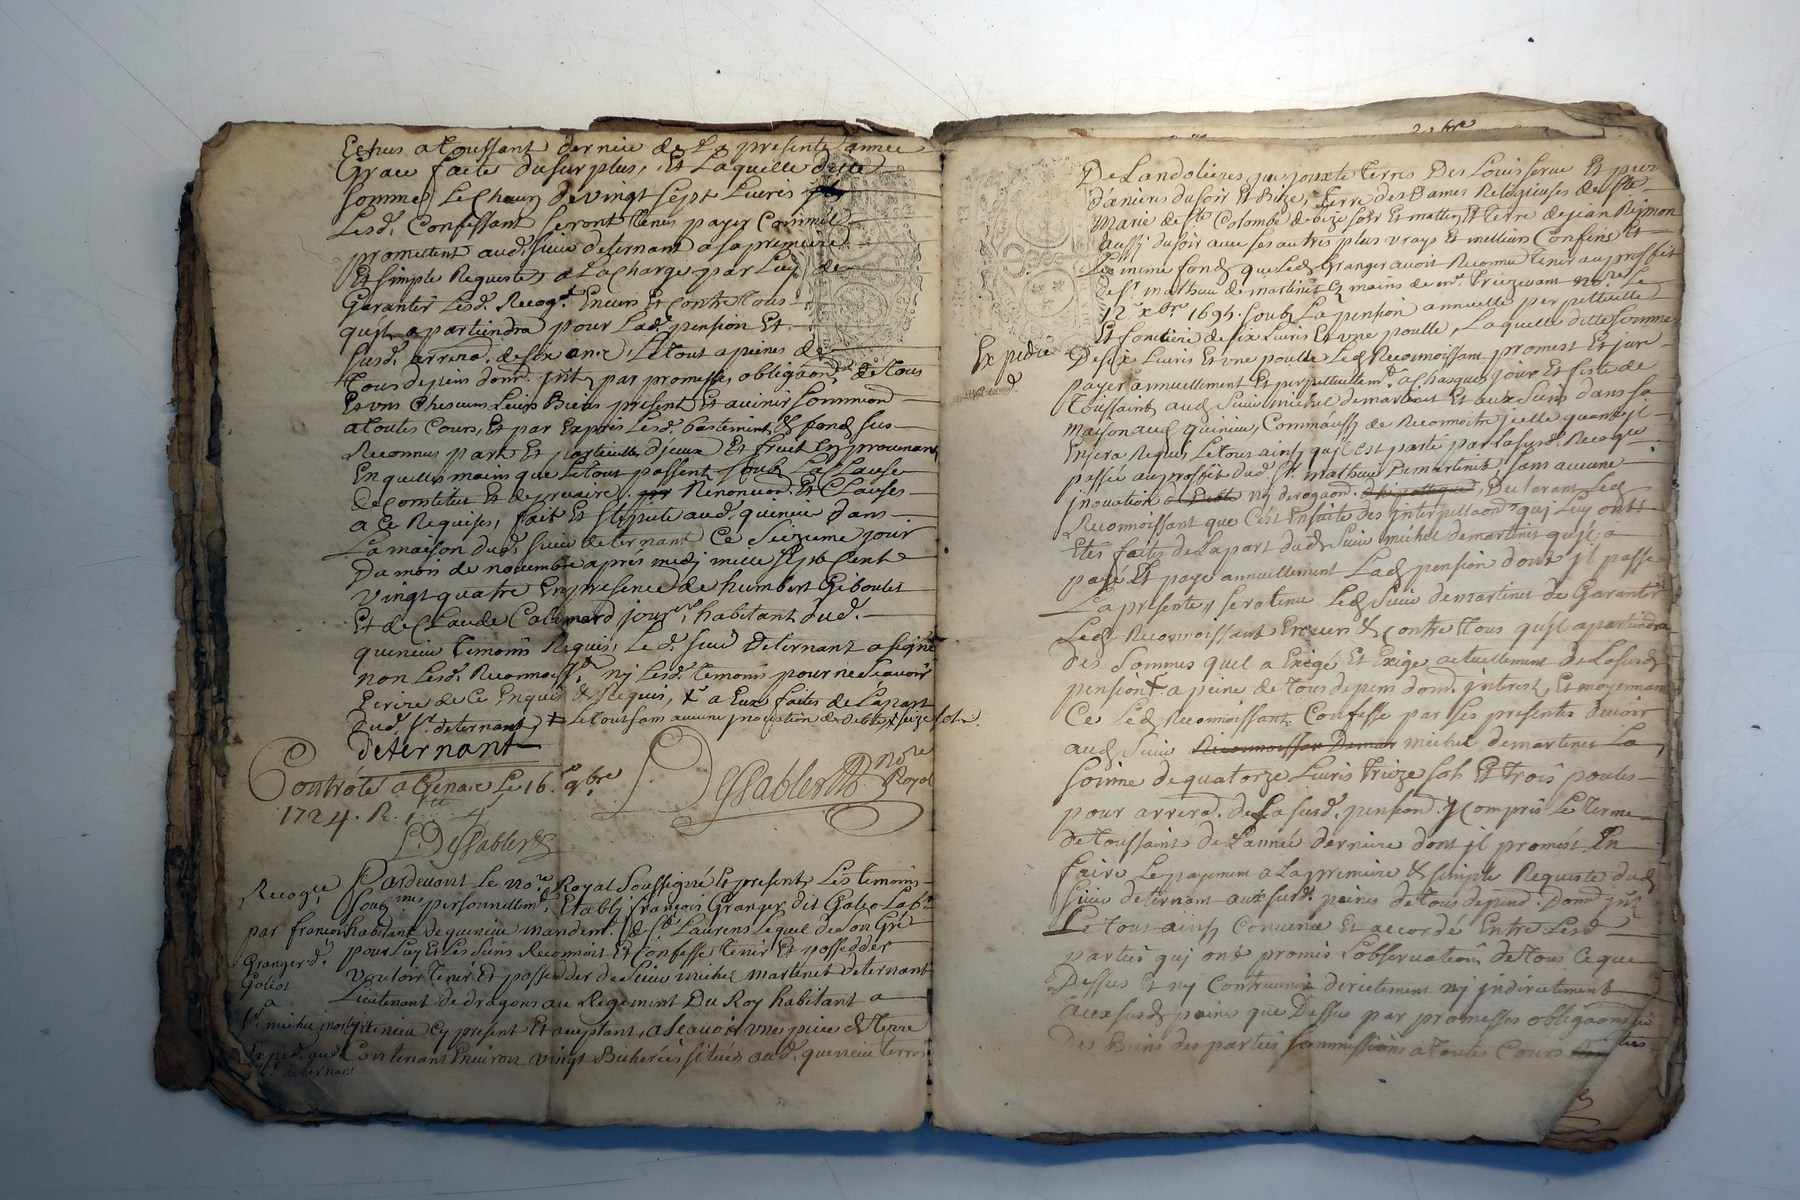 Echus a toussant derniere de La presente année
Grace faite du surplus, Et Laquelle ditte
somme Le Chacun de vingt sept Livres
Lesd. Confessant seront tenus payer Comme
promettent aud. sieur deternant a la premiere
Et simple Requeste, a La Charge par Luy de
Garantir Lesd. Recog.t Envers Et Contre tous
qu'il apartiendra pour Lad. pension Et
susd. arrera. de six ans, Le tout a peines de
tous depens dom. jnt par promesse, obligaon de tous
Et uns Chescuns Leurs Biens present Et avenir soummon
a toutes Cours, Et par Exprés Lesd. bastiment & fond sus
Reconnus part Et particulle d'jceux Et fruit En provenant
En quelles mains que Le tout passent soub La Clause
de Constitut Et de prvaire. Renonciaon. Et Clauses
a Ce Requises, fait Et stipulé aud. quincieu dans
La maison dud. sieur deternant Ce seizieme jour
Du mois de novembre aprés midj mille sept Cent
vingt quatre En presence de humbert Giboulet
Et de Claude Calimard jour.er habitant dud.
quincieu temoins Requis, Led. sieur Deternant a signé
non Lesd. Reconnoiss. ny Lesd. temoins pour ne scavoir
Ecrire de Ce Enquis & Requis, a Eux faites de La part
dud. Sr. deternant, Le tout sans aucune jnovation de debte
deternant
Contrôlé a Genaix Le 16.e 9bre
1724. R.
Dessables No.re Royal
Dessables
Pardevant Le no.re Royal soussigné Et presents Les temoins
soub.nés personnellem.t Etably françois Granger dit Galeo Lab.r
habitant de quincieu mandem.t de St Laurens Lequel de son Gré
pour Luy Et Les siens Reconnoit Et Confesse tenir Et possedder
vouloir tenir Et possedder de sieur michel martinet deternant
Lieutenant de dragons au Regiment Du Roy habitant a
quincieu Cy present Et aceptant, a scavoir une piece de terre
Contenant Environ vingt Bicherées située aud. quincieu terroir
Recog.ce
par françois
Granger d.
Goliot
a
Sr. michel
Exped. aud.
Sr. deternant
De Landolieres jouxte terres Des Louis serve Et
d'anieres du soir Et Bize, terre des Dames Religieuses de Ste
Marie de Ste Colombe de bize soir Et matin, Et terre de jean Reymon
aussj du soir avec ses autres plus vrays Et meilleurs Confins Et
Le meme fond que Led. Granger avoit Reconnu tenir au proffit
de Sr. mathieu de martinet Es mains de Me. no.re Le
12.e xbre 1695. soub La pension annuelle perpetuelle
Et fonciere de six Livres Et une poulle, Laquelle ditte somme
Expediée
De six Livres Et une poulle Led. Reconnoissant promest Et jure
payer annuellement Et perpetuellem.t a Chasques jour Et feste de
toussaint aud. sieur michel demartinet Et aux siens dans sa
maison aud. quincieu, Comm'aussj de Reconnoitre jcelle quand jl
En sera Requis, Le tous ainsj qu'il Est porté par La susd. Recog.ce
passée au proffit dud. Sr. mathieu Demartinet, sans aucune
jnovation ny derogaon. Declarant Led.
Reconnoissant que C'est En suite des jnterpellaons quj Luy ont
Etés faites de La part dud. sieur michel demartinet qu'il a
payé Et paye annuellement Lad. pension dont jl passe
La presente, sera tenu Led. sieur demartinet de Garantir
Led. Reconnoissant Envers & Contre tous qu'il apartiendra
des sommes quel a Exigé Et Exige actuellement de La susd.
pension a peine de tous depens dom. jnterest, Et moyennant
Ce Led. Reconnoissant Confesse par Ses presentes devoir
aud. sieur michel demartinet La
somme de quatorze Livres treize sols Et trois poules
pour arrera. de La susd. pension. y Compris Le terme
de toussaint de L'année derniere dont jl promest En
faire Le payement a La premiere & simple Requeste dud.
sieur deternant aux susd. peines de tous depend. Dom. jnt
Le tous ainsj Convenu Et accordé Entre Lesd.
parties quj ont promis L'observation de tous Ce que
Dessus Et ny Contrevenir directement ny jndirectement
aux susd. peines que Dessus par promesses obligaons
Des Biens des parties sommissions a toutes Cours